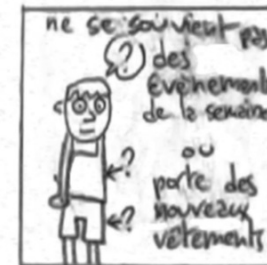 ne se souvient pas
? des
évènements
de la semaine
ou
? porte des
nouveaux
? vêtements